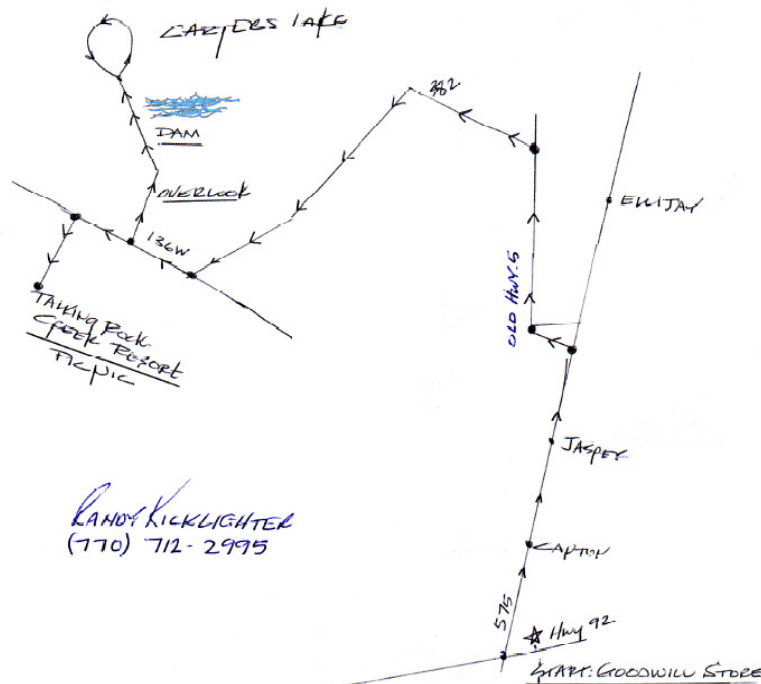 CARTERS LAKE
382
DAM
OVERLOOK
136W
ELLIJAY
OLD HWY. 5
TALKING ROCK
CREEK RESORT
PICNIC
JASPER
RANDY KICKLIGHTER
(770) 712-2995
CANTON
575
☆ HWY 92
START: GOODWILL STORE